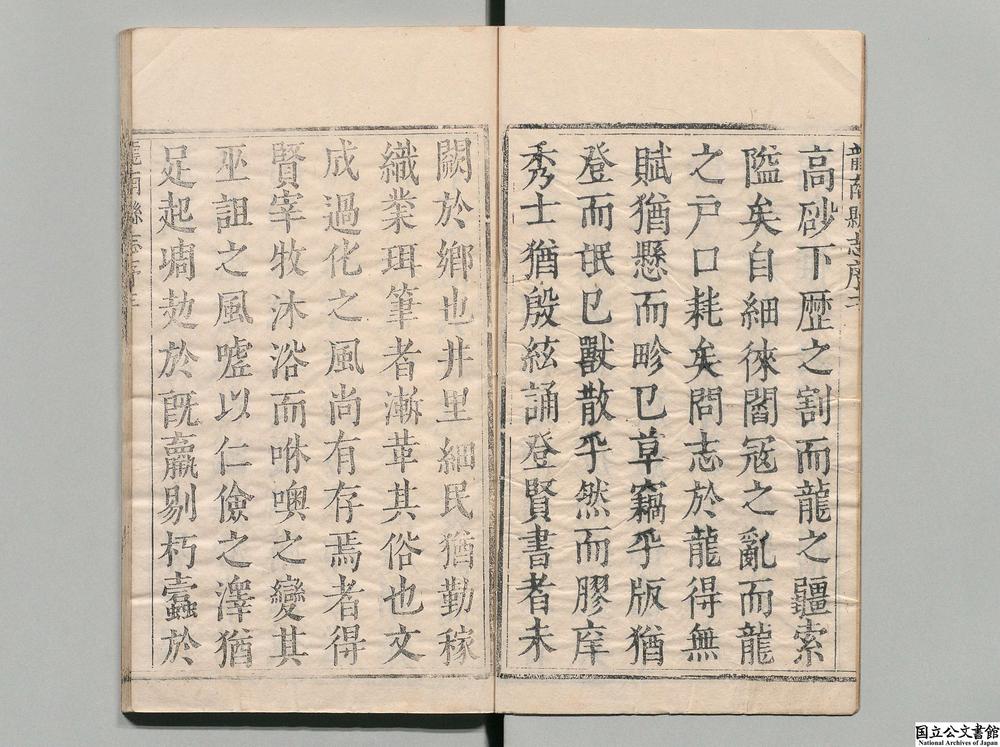 龍南縣志序二
高砂下歷之割而龍之疆索
隘矣自細徠閻冦之亂而龍
之户口耗矣問志於龍得無
賦猶懸而畛已草竊乎版猶
登而氓已獸散乎然而膠庠
秀士猶殷絃誦登賢書者未
闕於鄉也井里細民猶勤稼
織業珥筆者漸革其俗也文
成過化之風尚有存焉者得
賢宰牧沐浴而咻噢之變其
巫詛之風噓以仁儉之澤猶
足起凋勊於既羸剔朽蠹於
龍南縣志序三
国立公文書館
National Archives of Japan